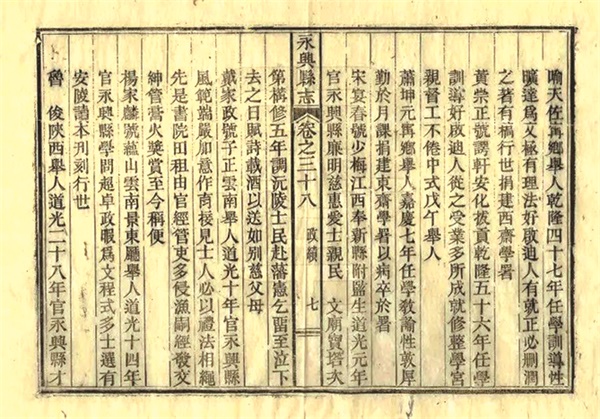 喻天佐甯鄉舉人乾隆四十七年任學訓導性
曠達爲文極有理法好啟迪人有就正必刪潤
之著有槁行世捐建西齋學署
黃崇正號謬軒安化拔貢乾隆五十六年任學
訓導好啟迪人從之受業多所成就修整學宮
親督工不倦中式戊午舉人
蕭坤元甯鄉舉人嘉慶七年任學教諭性敦厚
勤於月課捐建東齋學署以病卒於署
宋宴春號少梅江西奉新縣附監生道光元年
官永興縣廉明慈惠愛士親民 文廟寶塔次
永興縣志 卷之三十八 政績 七
第構修五年調沅陵士民赴藩憲乞畱至泣下
去之日賦詩載酒以送如別慈父母
戴家政號子正雲南舉人道光十年官永興縣
風範端嚴加意作育接見士人必以禮法相繩
先是書院田租由官經管吏多侵漁嗣經發交
紳管膏火獎賞至今稱便
楊家麟號蘊山雲南景東廳舉人道光十四年
官永興縣學問超卓政暇爲文程式多士選有
安陵讀本刊刻行世
魯 俊陝西舉人道光二十八年官永興縣才